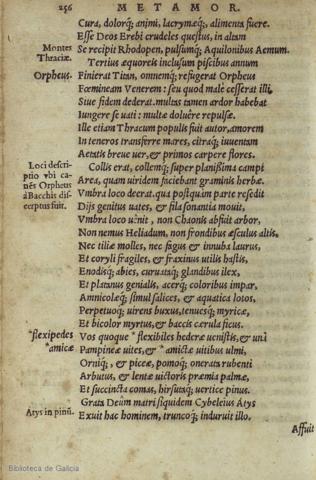 256 METAMOR.
Cura, dolorq; animi, lacrymæq;, alimenta fuere.
Esse Deos Erebi crudeles questus, in altam
Montes
Thraciæ.
Se recipit Rhodopen, pulsumq; Aquilonibus Aemum.
Tertius æquoreis inclusum piscibus annum
Orpheus.
Finierat Titan, omnemq; refugerat Orpheus
Fœmineam Venerem: seu quod male cesserat illi,
Siue fidem dederat. multas tamen ardor habebat
Iungere se uati: multæ doluêre repulsæ.
Ille etiam Thracum populis fuit autor, amorem
In teneros transferre mares, citraq; iuuentam
Aetatis breue uer, & primos carpere flores.
Loci descri-
ptio vbi ca-
nẽs Orpheus
à Bacchis dis-
cerptus fuit.
Collis erat, collemq; super planißima campi
Area, quam uiridem faciebant graminis herbæ.
Vmbra loco deerat. qua postquam parte resedit
Dijs genitus uates, & fila sonantia mouit,
Vmbra loco uẽnit, non Chaonis abfuit arbor,
Non nemus Heliadum, non frondibus æsculus altis,
Nec tiliæ molles, nec fagus & innuba laurus,
Et coryli fragiles, & fraxinus utilis hastis,
Enodisq; abies, curuataq; glandibus ilex,
Et platanus genialis, acerq; coloribus impar,
Amnicolæq; simul salices, & aquatica lotos,
Perpetuoq; uirens buxus, tenuesq; myricæ,
Et bicolor myrtus, & baccis cærula ficus.
*flexipedes
*amictæ
Vos quoque * flexibiles hederæ uenistis, & unà
Pampineæ uites, & * amictæ uitibus ulmi,
Orniq;, & piceæ, pomoq; onerata rubenti
Arbutus, & lentæ uictoris præmia palmæ,
Et succincta comas, hirsutaq; uertice pinus.
Grata Deûm matri siquidem Cybeleius Atys
Atys in pinũ.
Exuit hac hominem, truncoq; induruit illo.
Affuit
Biblioteca de Galicia